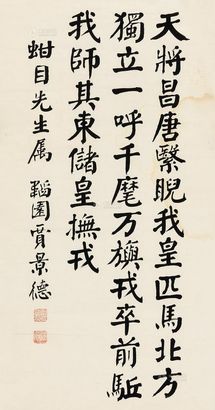 天將昌唐繄睨我皇匹馬北方
獨立一呼千麾万旟戎卒前駈
我師其東儲皇撫戎
蚶目先生属 韜園賈景德